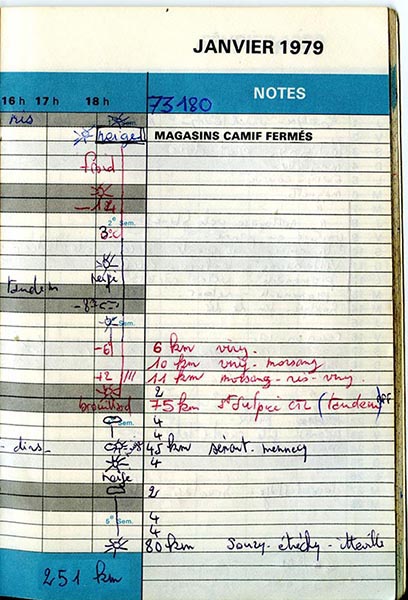 JANVIER 1979
NOTES
16 h 17 h 18 h 73180
ris
neige MAGASINS CAMIF FERMÉS
froid
-12
2e Sem.
3°c
neige
tandem
-8°
Sem.
-6 6 km viry.
10 km viry-morsang
+2 11 km morsang-ris-viry.
2
brouillard 75 km St Sulpice (tandem)
4
4
45 km sénart. mennecy
4
neige
2
5e Sem.
4
4
80 km Souzy-étréchy-itteville
251 km